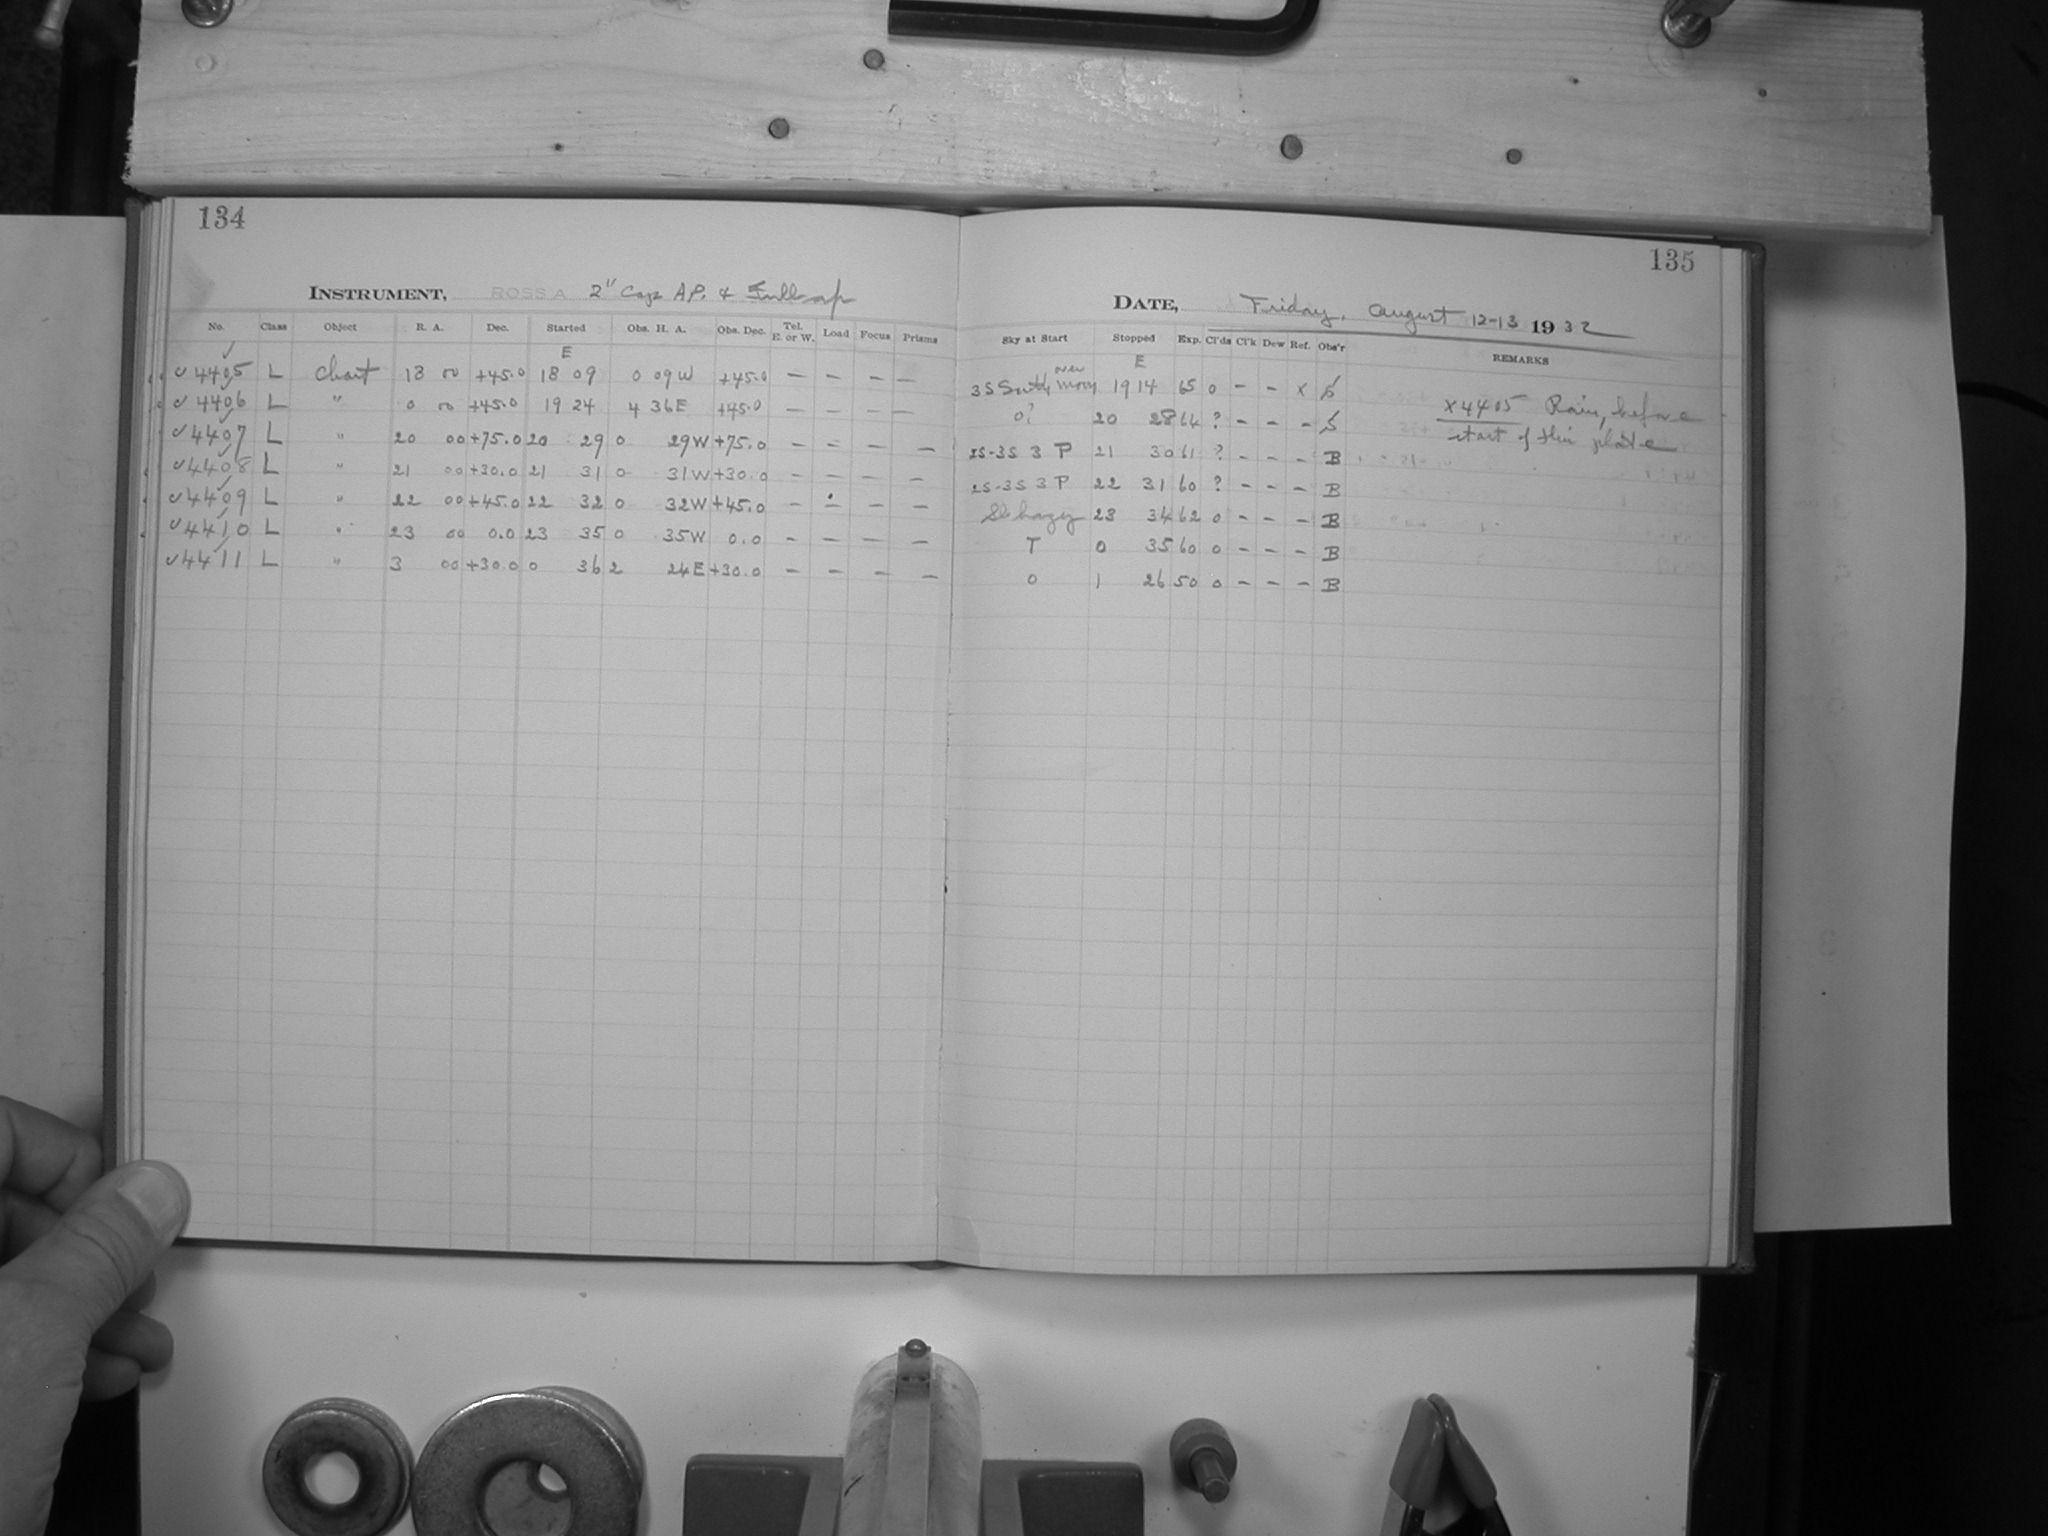 134
INSTRUMENT, ROSS A 2" Cap Ap. & Full ap
No. Class Object R. A. Dec. Started Obs. H. A. Obs. Dec. Tel. E. or W. Load Focus Prisms
E
✓ 4405 L Chart 18 00 +45.0 18 09 0 09W +45.0 — — — —
✓ 4406 L " 0 00 +45.0 19 24 4 36E +45.0 — — — —
✓ 4407 L " 20 00 +75.0 20 29 0 29W +75.0 — — — —
✓ 4408 L " 21 00 +30.0 21 31 0 31W +30.0 — — — —
✓ 4409 L " 22 00 +45.0 22 32 0 32W +45.0 — — — —
✓ 4410 L " 23 00 0.0 23 35 0 35W 0.0 — — — —
✓ 4411 L " 3 00 +30.0 0 36 2 24E +30.0 — — — —
135
DATE, Friday, August 12-13 1932
Sky at Start Stopped Exp. Cl'ds Cl'k Dew Ref. Obs'r REMARKS
E
3S South, over moon 19 14 65 0 — — x S
0? 20 28 64 ? — — — S
2S-3S 3 P 21 30 61 ? — — — B
2S-3S 3 P 22 31 60 ? — — — B
Sl hazy 23 34 62 0 — — — B
T 0 35 60 0 — — — B
0 1 26 50 0 — — — B
x4405 Rain, before
start of this plate